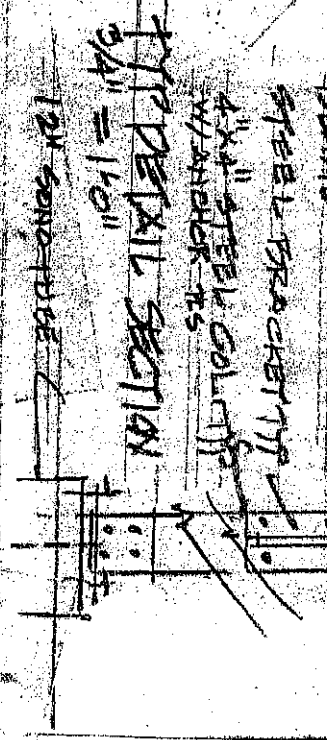 STEEL BRACKET TYP
4"X4" STEEL COL TYP
W/ ANCHOR
TYP DETAIL SECTION
3/4" = 1'-0"
12" SONO TUBE